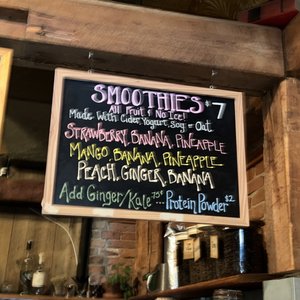 SMOOTHIES $7
All Fruit & No Ice!
Made With Cider, Yogurt, Soy or Oat
STRAWBERRY, BANANA, PINEAPPLE
MANGO, BANANA, PINEAPPLE
PEACH, GINGER, BANANA
Add Ginger/Kale 75¢ Protein Powder $2